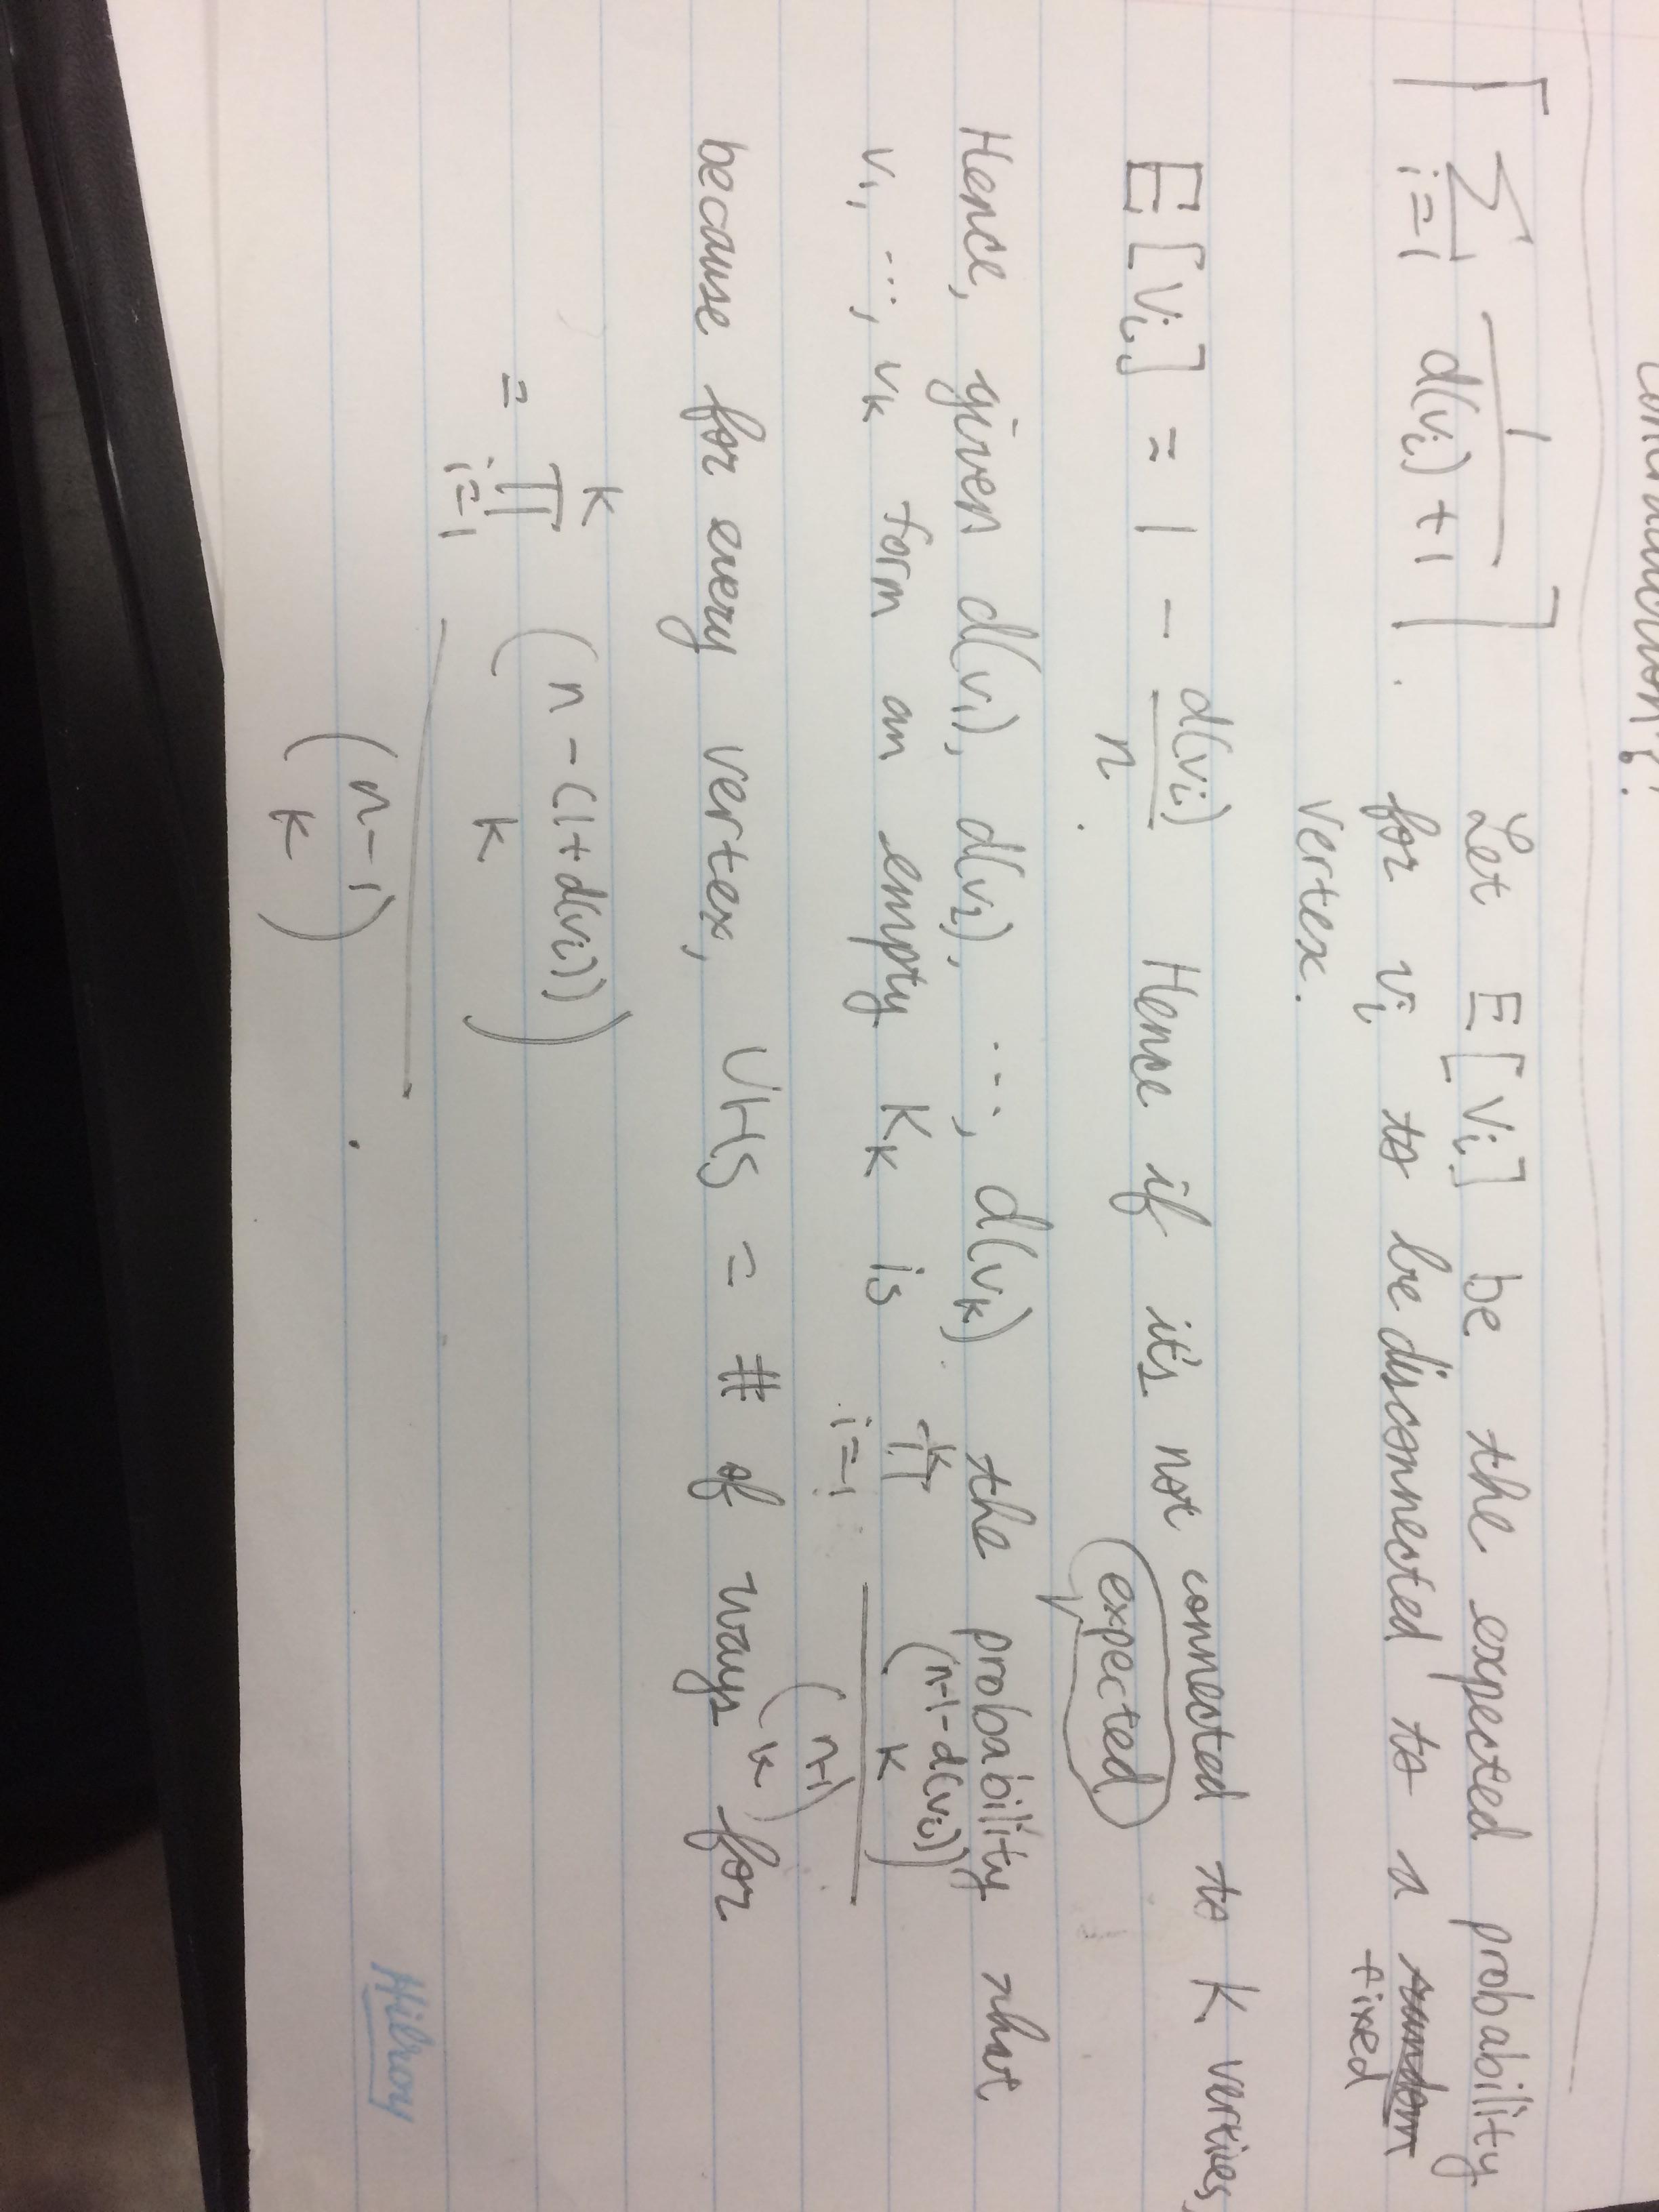 Contradiction??
[ ∑_{i=1} 1/(d(vᵢ)+1) ]. Let E[Vᵢ] be the expected probability
for vᵢ to be disconnected to a random fixed
vertex.
E[Vᵢ] = 1 - d(vᵢ)/n. Hence if it's not connected to K verties,
expected
Hence, given d(v₁), d(v₂), ..., d(vₖ) the probability that
v₁, ..., vₖ form an empty Kₖ is ∏_{i=1}^{k} (n-1-d(vᵢ) k)/(n-1 k)
because for every vertex, UHS = # of ways for
= ∏_{i=1}^{k} (n-(1+d(vᵢ)) k)/(n-1 k).
Hilroy